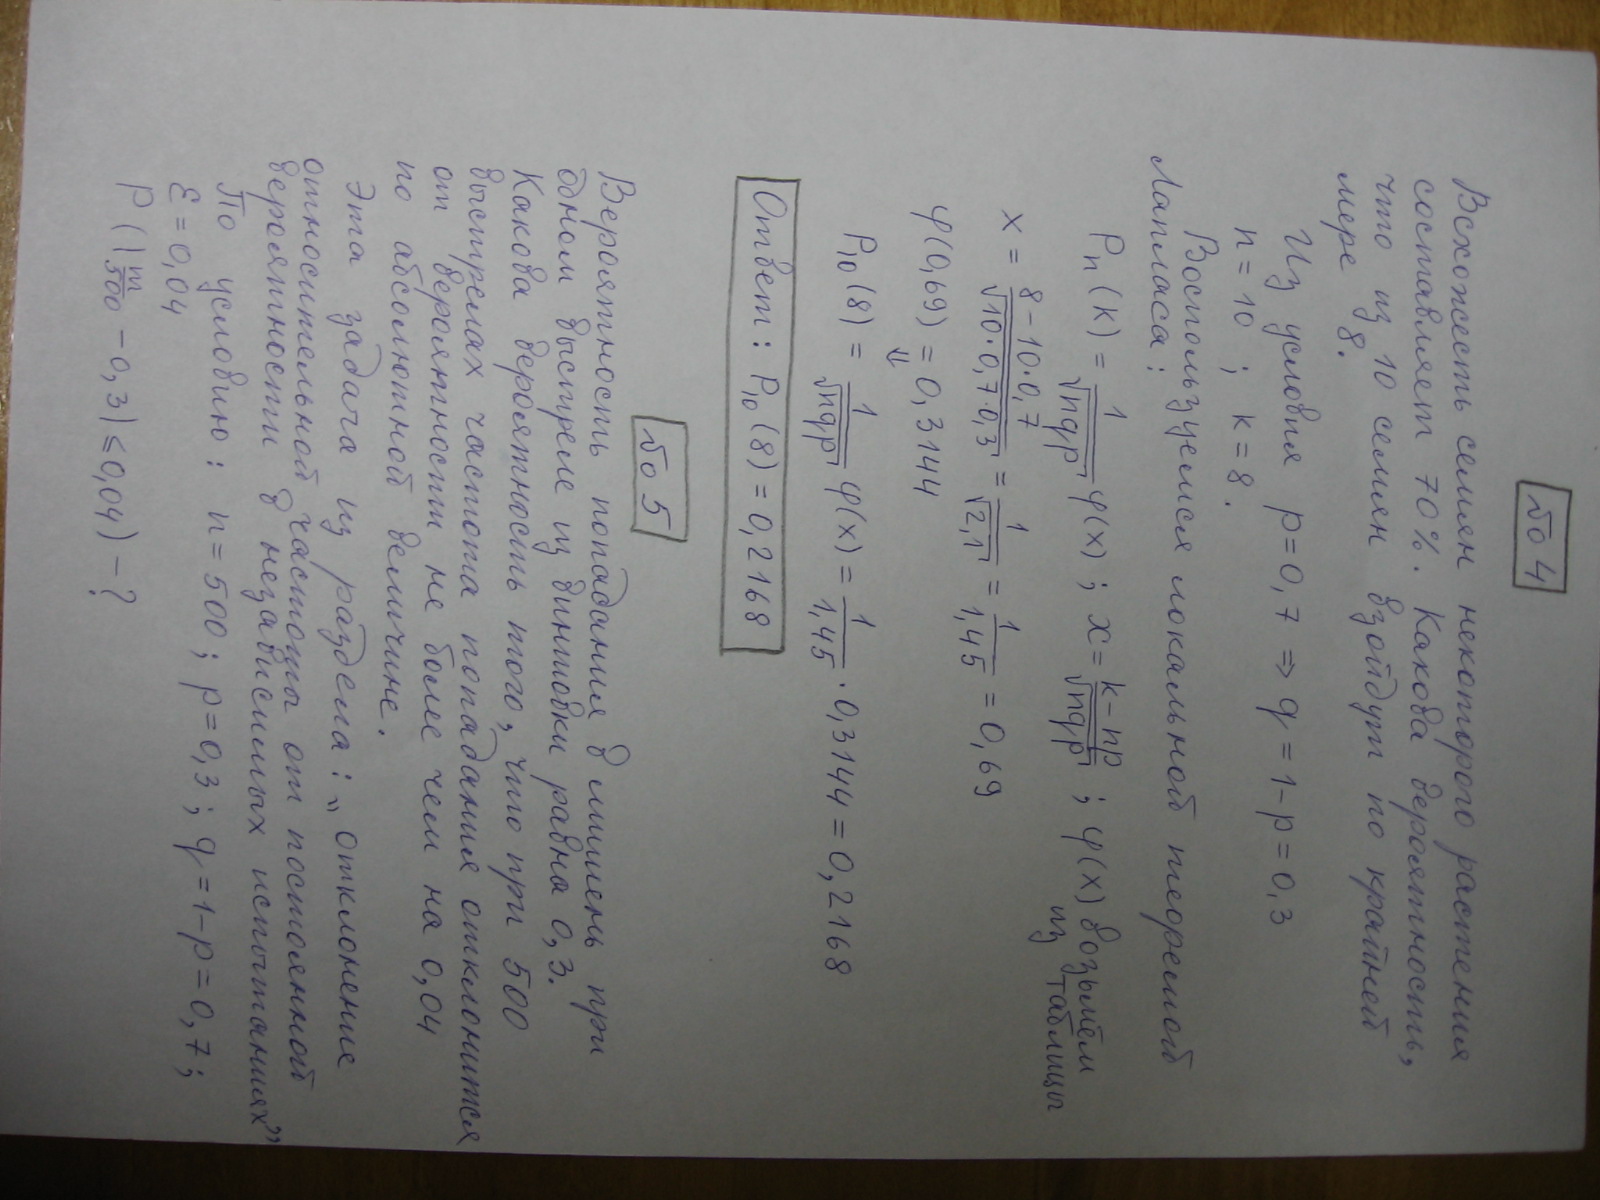 № 4
Всхожесть семян некоторого растения
составляет 70%. Какова вероятность,
что из 10 семян взойдут по крайней
мере 8.
Из условия p=0,7 ⇒ q=1-p=0,3
n=10 ; k=8.
Воспользуемся локальной теоремой
Лапласа:
Pn(k) = 1/√npq φ(x) ; x = k-np/√npq ; φ(x) возьмём
из таблицы
x = 8-10·0,7/√10·0,7·0,3 = 1/√2,1 = 1/1,45 = 0,69
⇓
φ(0,69) = 0,3144
P10(8) = 1/√npq φ(x) = 1/1,45 · 0,3144 = 0,2168
Ответ: P10(8) = 0,2168
№ 5
Вероятность попадания в мишень при
одном выстреле из винтовки равна 0,3.
Какова вероятность того, что при 500
выстрелах частота попадания отклонится
от вероятности не более чем на 0,04
по абсолютной величине.
Эта задача из раздела: „отклонение
относительной частоты от постоянной
вероятности в независимых испытаниях”
По условию: n=500; p=0,3; q=1-p=0,7;
ε=0,04
P(|m/500 -0,3| ≤ 0,04) - ?